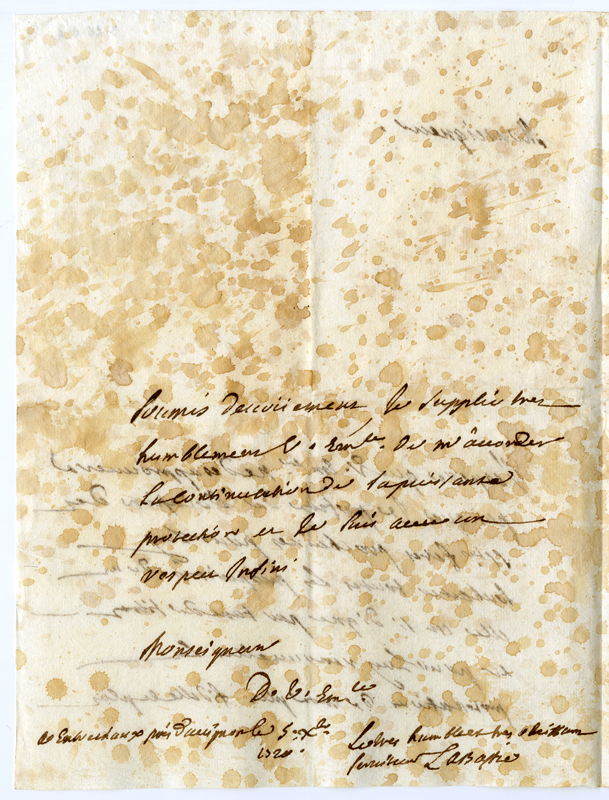 soumis devoüement Je supplie tres
humblement V. Em.ce De m'accorder
La Continuation de sa puissante
protection et Je suis avec un
respect Infini
Monseigneur
De V. Em.ce
de Entrechaux prés d'avignon le 5.e X.bre
1720.
Le tres humble et tres obeissant
serviteur LaBastie